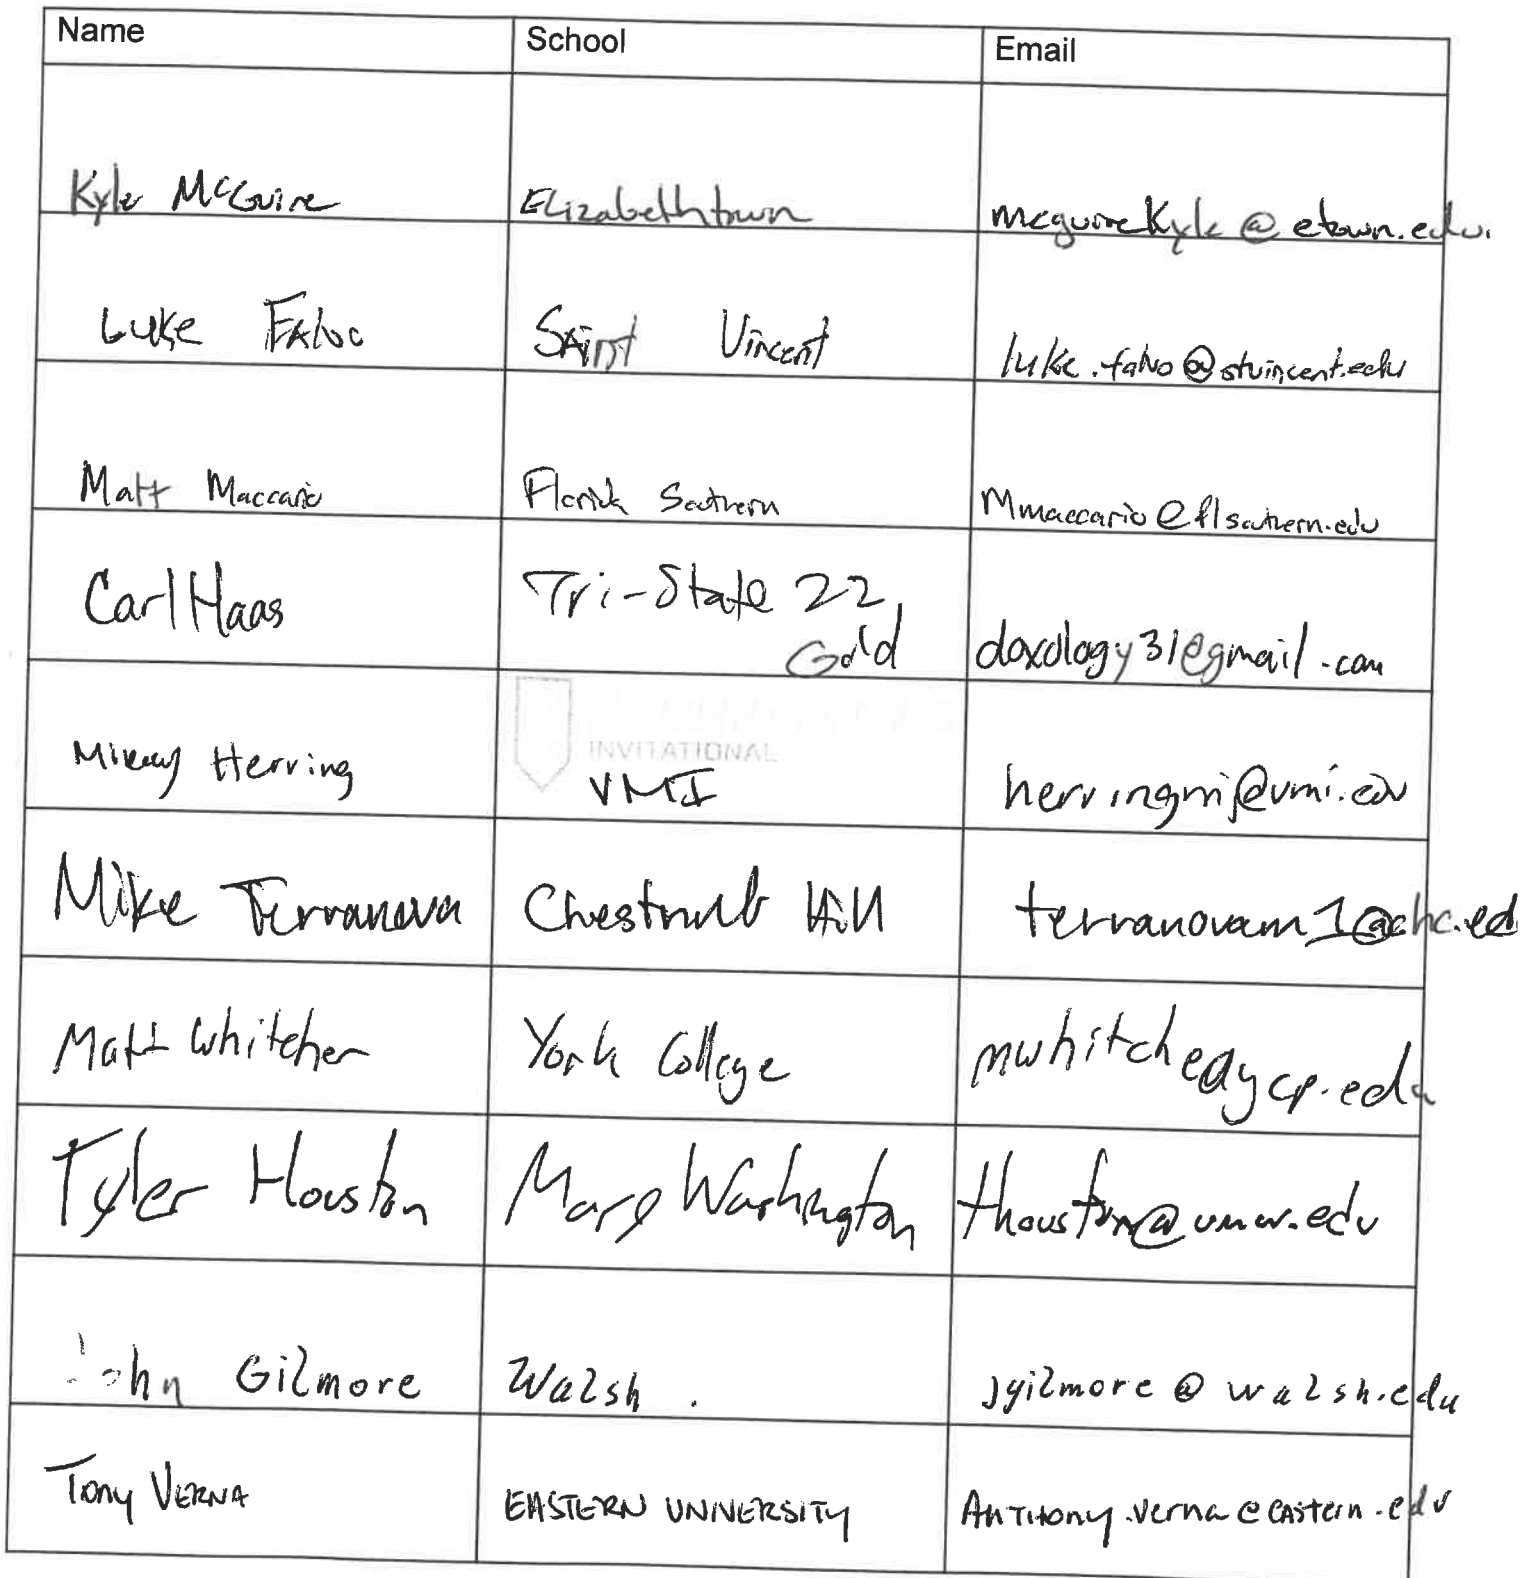 Name School Email
Kyle McGuire Elizabethtown mcguirekyle@etown.edu.
Luke Falvo Saint Vincent luke.falvo@stvincent.edu
Matt Maccario Florida Southern Mmaccario@flsouthern.edu
Carl Haas Tri-State 22
Gold doxology31@gmail.com
INVITATIONAL
Mikey Herring VMI herringmj@vmi.edu
Mike Terranova Chestnut Hill terranovam1@chc.ed
Matt Whitcher York College mwhitche@ycp.edu
Tyler Houston Mary Washington thouston@umw.edu
John Gilmore Walsh. jgilmore@walsh.edu
Tony VERNA EASTERN UNIVERSITY Anthony.verna@eastern.edu